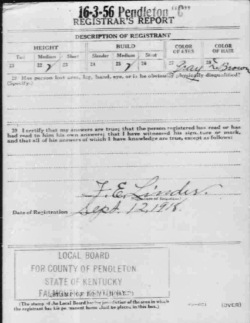 16-3-56 Pendleton "C"
REGISTRAR'S REPORT
DESCRIPTION OF REGISTRANT
HEIGHT BUILD COLOR OF EYES COLOR OF HAIR
Tall Medium Short Slender Medium Stout
Gray Brown
29 Has person lost arm, leg, hand, eye, or is he obviously physically disqualified?
(Specify.)
30 I certify that my answers are true; that the person registered has read or has
had read to him his own answers; that I have witnessed his signature or mark,
and that all of his answers of which I have knowledge are true, except as follows:
Date of Registration Sept. 12 1918
LOCAL BOARD
FOR COUNTY OF PENDLETON
STATE OF KENTUCKY
(The stamp of the Local Board having jurisdiction of the area in which
the registrant has his permanent home shall be placed in this box.)